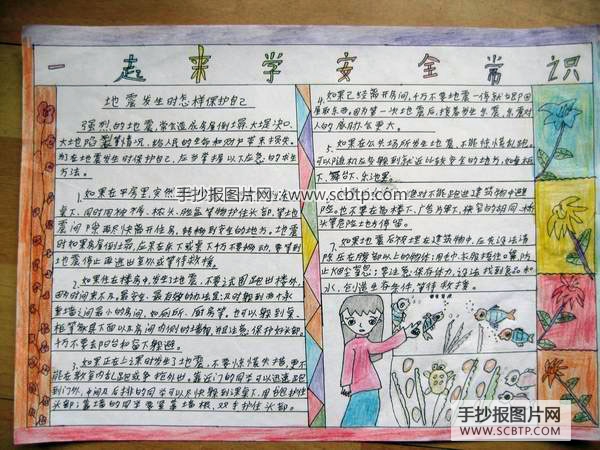 一起来学安全常识
地震发生时怎样保护自己
强烈的地震,常造成房屋倒塌、大堤决口、
大地陷裂等情况,给人民的生命和财产带来损失。
为在地震发生时保护自己,应当掌握以下应急的求生
方法。
1、如果在平房里,突然
桌下,同时用被子、枕头、脸盆等物护住头部,等地
震间隙再尽快离开住房,转移到安全的地方。地震
时如果房屋倒塌,应呆在床下或桌下千万不要移动,要等到
地震停止再逃出室外或等待救援。
2、如果住在楼房中,发生了地震,不要试图跑出楼外,
因为时间来不及。最安全、最有效的办法是:及时躲到两个承
重墙之间最小的房间,如厕所、厨房等。也可以躲到桌、
柜等家具下面以及房间内侧的墙角,并且注意保护好头部。
千万不要去阳台和窗下躲避。
3、如果正在上课时发生了地震,不要惊慌失措,更不
能在教室内乱跑或争抢外出。靠近门的同学可以迅速跑
到门外,中间及后排的同学可以尽快躲到课桌下,用书包护住
头部;靠墙的同学要紧靠墙根,双手护住头部。
4、如果已经离开房间,千万不要地震一停就立即回
屋取东西。因为第一次地震后,接着会发生余震,余震对
人的威胁会更大。
5、如果在公共场所发生地震,不能惊慌乱跑。
可以随机应变躲到就近比较安全的地方,如桌柜
下、舞台下、乐池里。
绝对不能跑进建筑物中避
险。也不要在高楼下、广告牌下、狭窄的胡同、桥
头等危险地方停留。
7、如果地震后被埋在建筑物中,应先设法清
除压在腹部以上的物体;用毛巾、衣服捂住口鼻,防
止烟尘窒息;要注意保存体力,设法找到食品和
水,创造生存条件,等待救援。
手抄报图片网
www.scbtp.com
手抄报图片网
WWW.SCBTP.COM